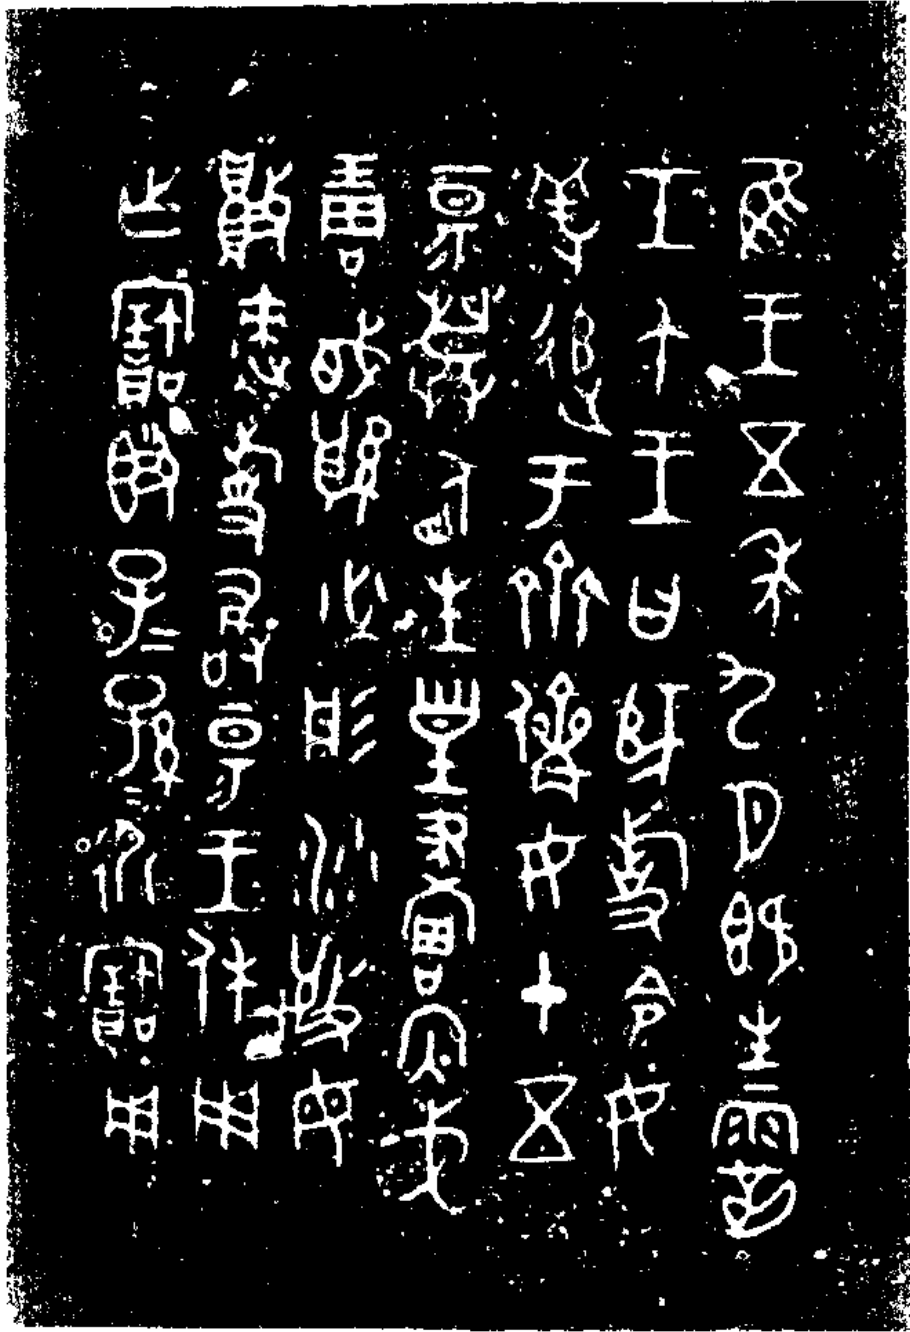 隹王五年九月既生霸
壬午王曰師旋令女
羞追于齊儕女十五
昜登盾生皇畫内戈
琱㦸䪅必彤沙敬毋
敗速旋敢昜王休用
乍寶簋子=孫=永寶用